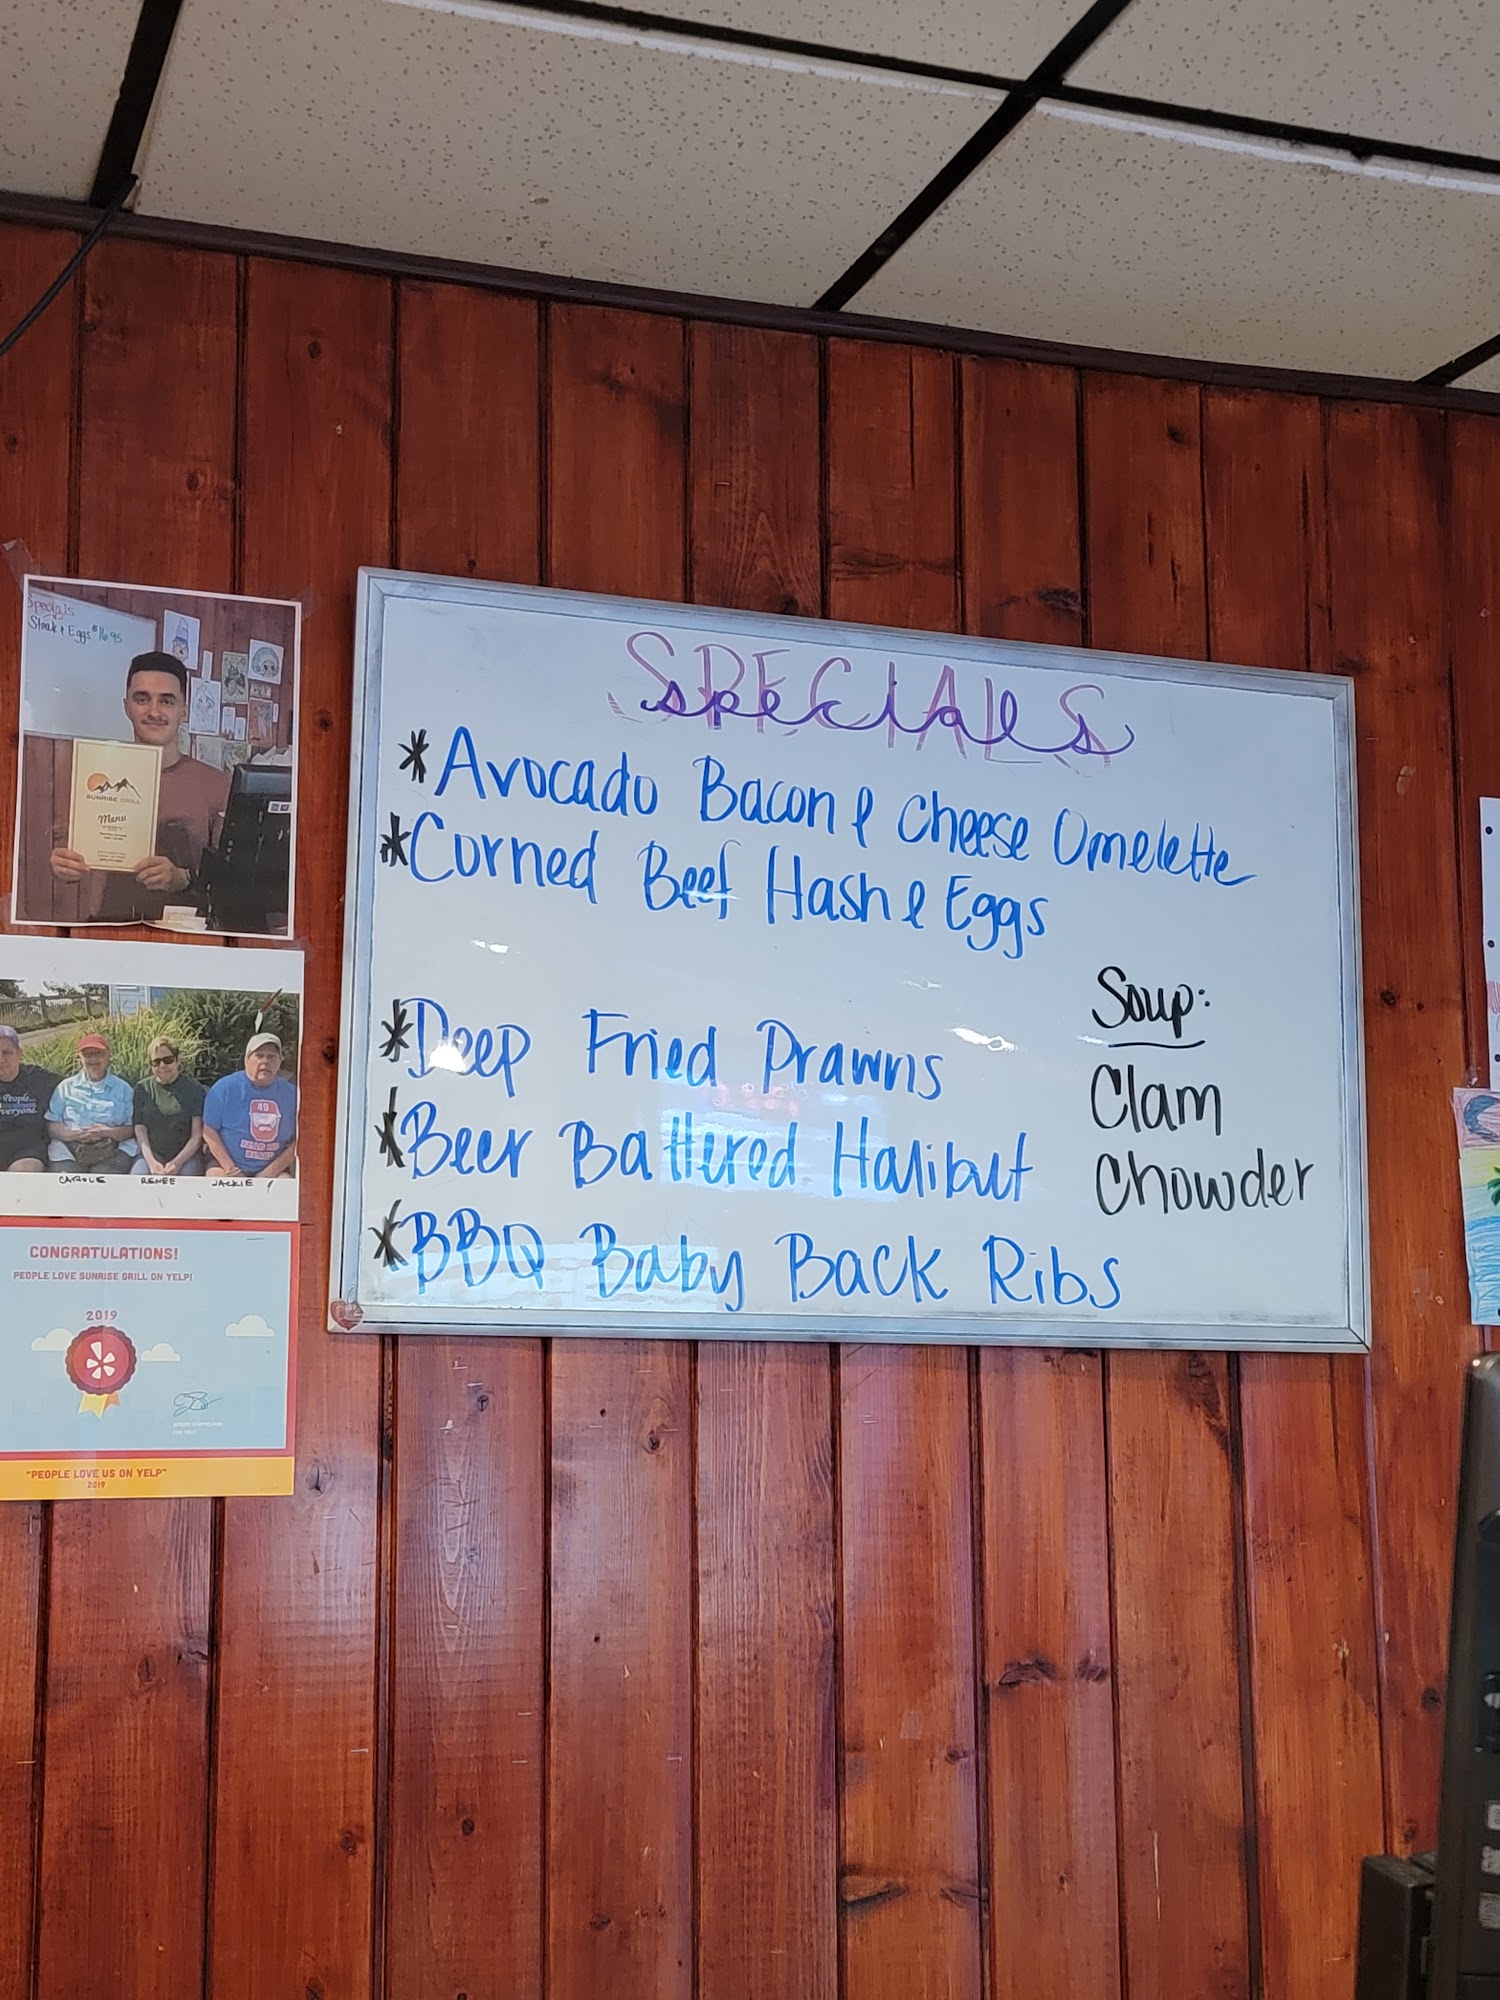 SPECIALS
specials
*Avocado Bacon & Cheese Omelette
*Corned Beef Hash & Eggs
*Deep Fried Prawns
*Beer Battered Halibut
*BBQ Baby Back Ribs
Soup:
Clam
Chowder
Specials
Steak & Eggs $16.95
SUNRISE GRILL
Menu
People...
everyone.
49
CAROLE RENEE JACKIE
CONGRATULATIONS!
PEOPLE LOVE SUNRISE GRILL ON YELP!
2019
"PEOPLE LOVE US ON YELP"
2019